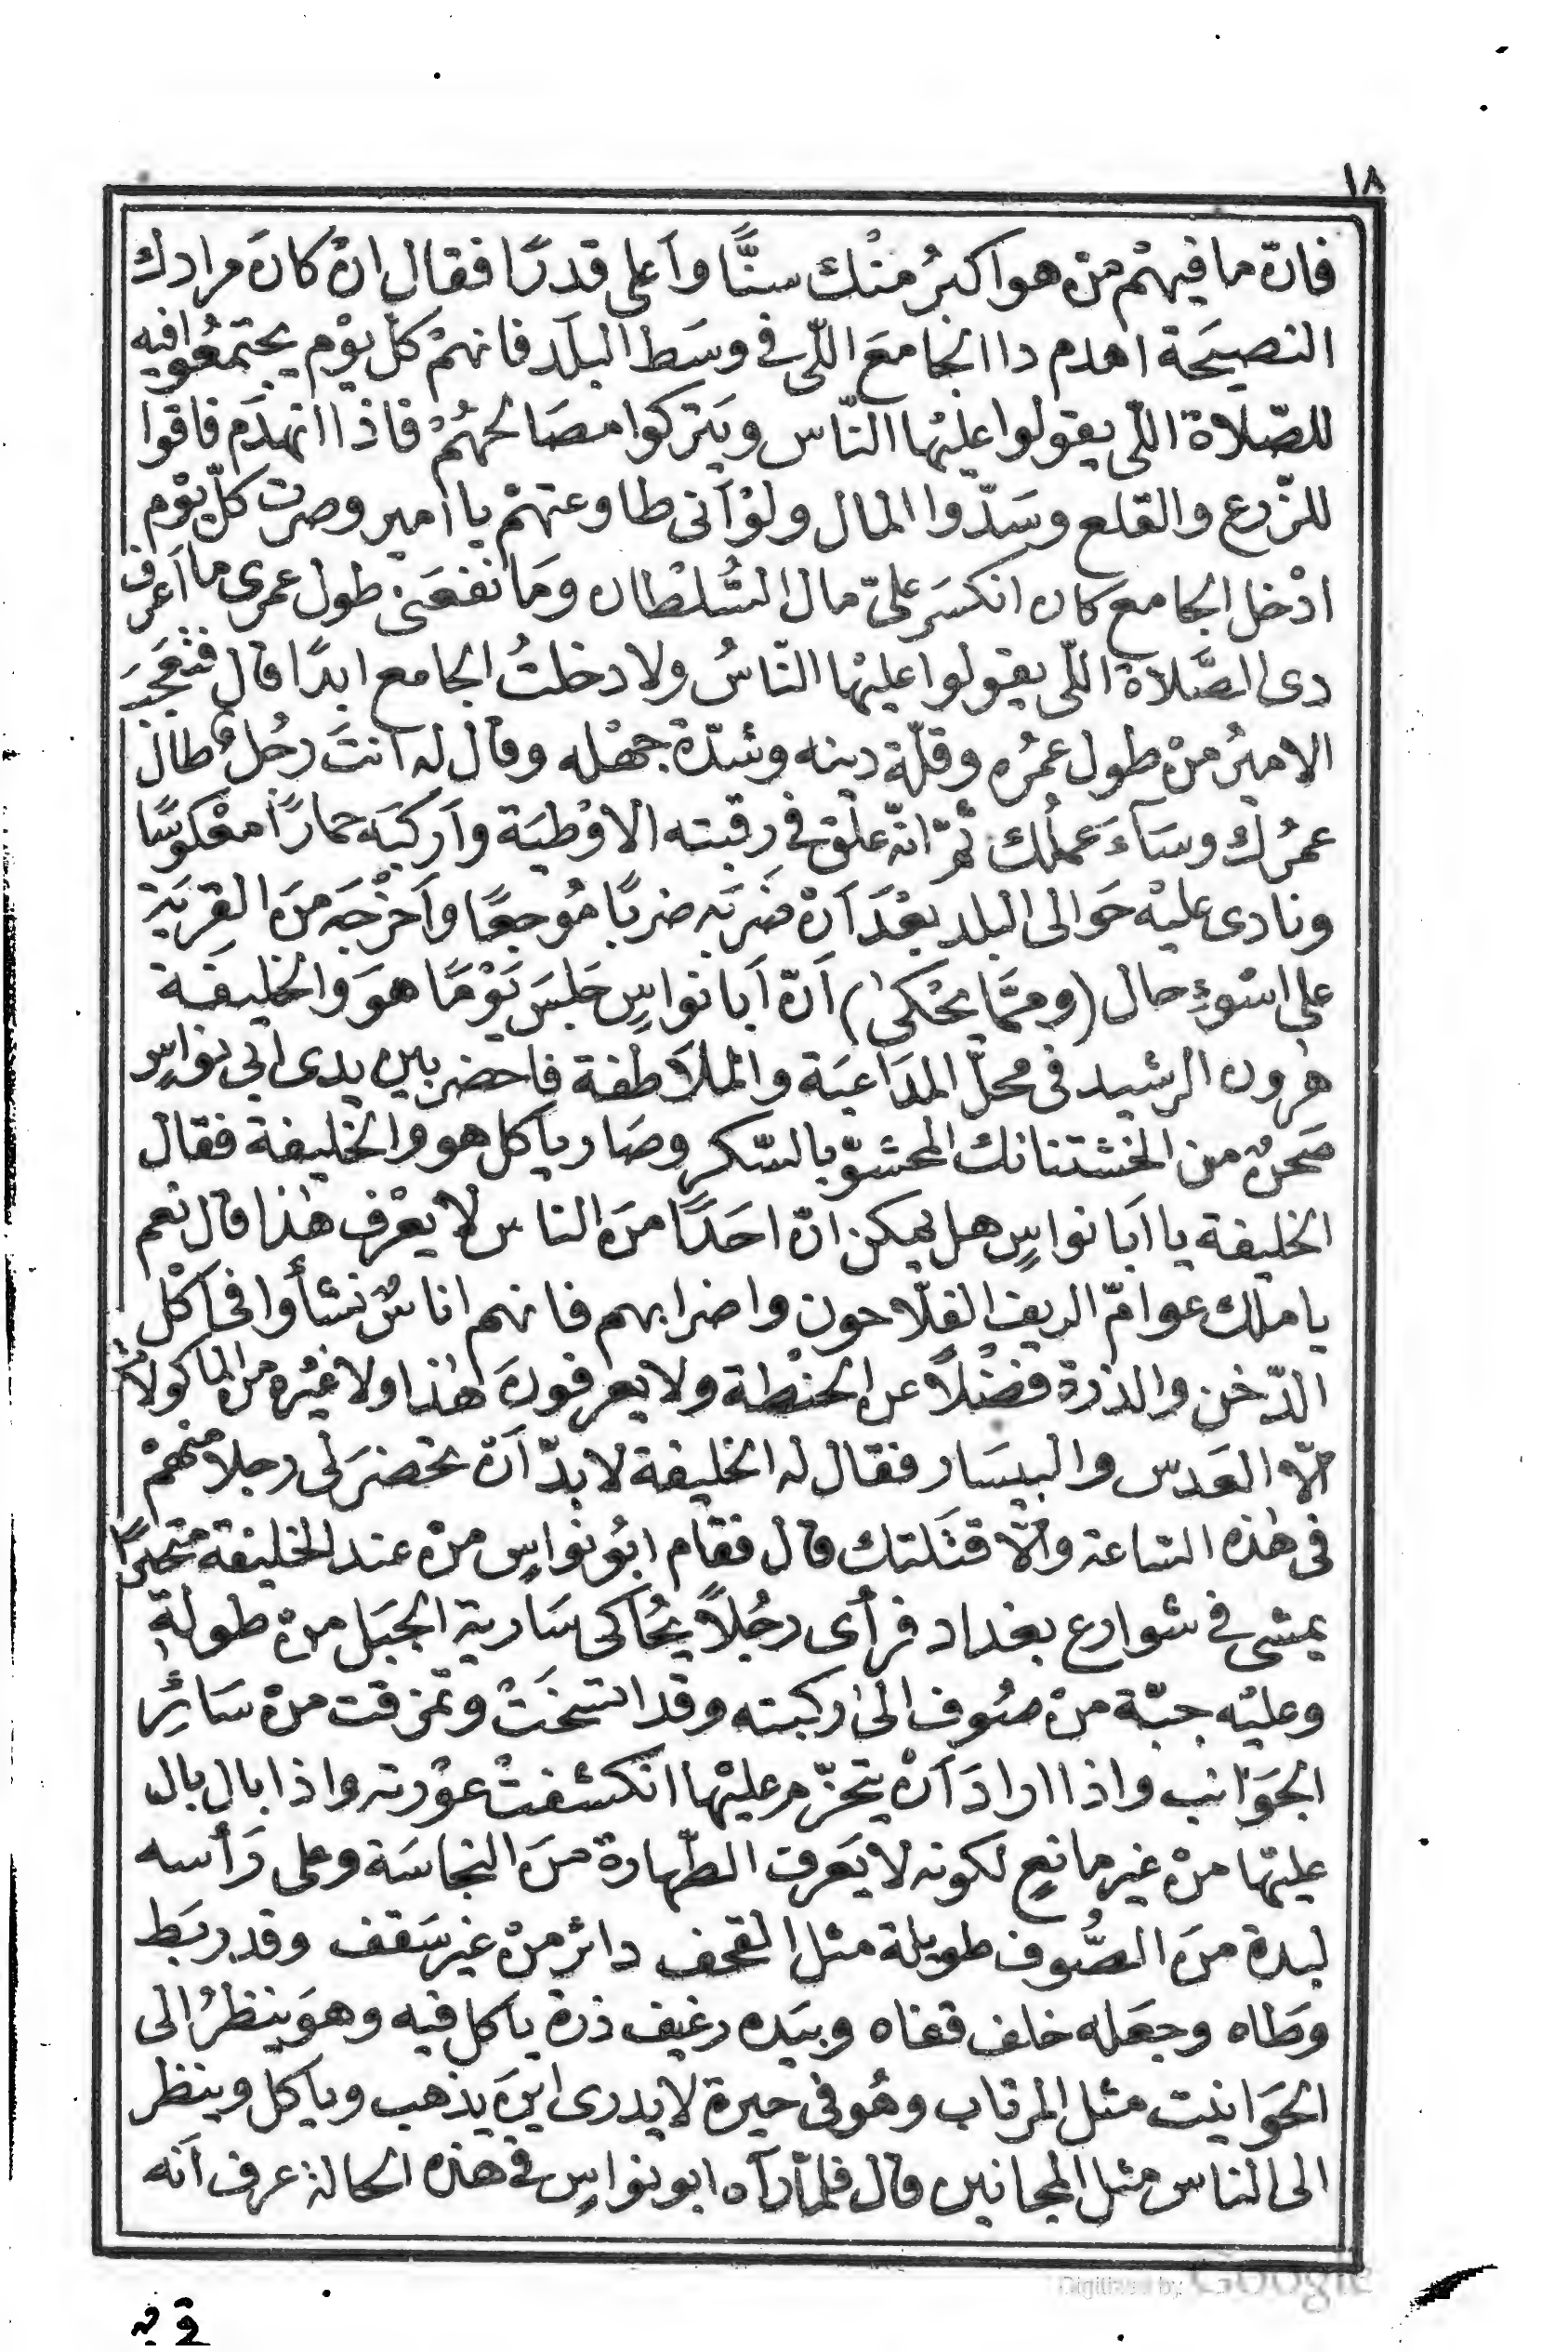 ١٨
فانّ ما فيهمْ منْ هو اكبرُ منْك سنًّا وأعلى قدرًا فقال انْ كانَ مرادك
النصيحَة اهدم دا الجامعَ اللّى فى وسَط البلَد فانهمْ كلّ يوْم يجتمعُوا فيه
للصّلاة اللّى يقولوا عليْها النّاس ويَتركوا مصَالحهُمْ فاذا انهدَم فاقوا
للزّرع والقلع وسَدّوا المال ولوْ أنى طاوعتهمْ يا امير وصرت كلّ يوْم
ادْخل الجامع كان انكسَر علىّ مال السُّلطان ومَا نفعَنى طول عمرى ما أعرف
دى الصَّلاة اللّى يقولوا عليْها النّاسُ ولا دخلتُ الجامع ابدًا قال فتعَجّبَ
الاميرُ منْ طول عمُره وقلّة دينه وشدّة جهْله وقال له أنتَ رجُلٌ طال
عمرُك وسَاءَ عملُك ثمّ انّه علّق فى رقبته الاوْطيَة وأركبَه حمارًا معْكوسًا
ونادى عليْه حَوالى البلد بعْدَ أنْ ضرَبَه ضربًا مُوجعًا وأخرْجَه منَ القريَة
على اسْوءِ حال (وممَّا يحْكى) أنّ أبا نواسٍ جَلسَ يَوْمًا هوَ والخليفة
هٰرون الرشيد فى محلّ المدَاعبَة والملاَطفة فاحضر بين يدى ابى نواسٍ
صَحنٌ من الخشتنانك المحشوّ بالسّكر وصَار ياكل هو والخليفة فقال
الخليفة يا ابَا نواسٍ هل يمكن انّ احَدًا منَ الناس لا يعْرف هٰذا قال نعم
يا ملك عوامّ الريف الفلّاحون واضرابهم فانهم اناسٌ نشأوا فى اكْل
الدّخن والذرة فضْلاً عن الحنْطة ولا يعرفونَ هٰذا ولا غيْره من الماكولات
الّا العَدس والبيسَار فقال له الخليفة لا بدّ أنْ تحْضرَ لى رجلا منهمْ
فى هٰذه السّاعة والّا قتَلتك قال فقام ابوُ نواسٍ منْ عند الخليفة متحيرًا
يمشى فى شوارع بغداد فرأى رجُلاً يحُاكى سَارية الجبَل منْ طولهِ
وعليْه جبّة منْ صُوف الىٰ ركبته وقد اتسَّخَتْ وتمزقت منْ سَائِر
الجوَانب واذا ارادَ أنْ يتحزّم عليْها انكشفتْ عوْرته واذا بال بال
عليْها منْ غير مانعٍ لكونه لا يَعرف الطّهارة منَ النجاسَة وعلى رَأسه
لبدة منَ الصُّوف طويلة مثل القحف دائر منْ غير سَقف وقد ربَط
وطَاه وجعَله خلف قفاه وبيَده رغيف ذرة ياكل فيه وهوَ ينظرُ الى
الحَوانيت مثل المرتاب وهُو فى حيرة لا يدرى اينَ يذهب وياكل وينظر
الى الناس مثل المجانين قال فلمّا رآه ابو نواسٍ فى هذه الحالة عرف أنه
Digitized by Google